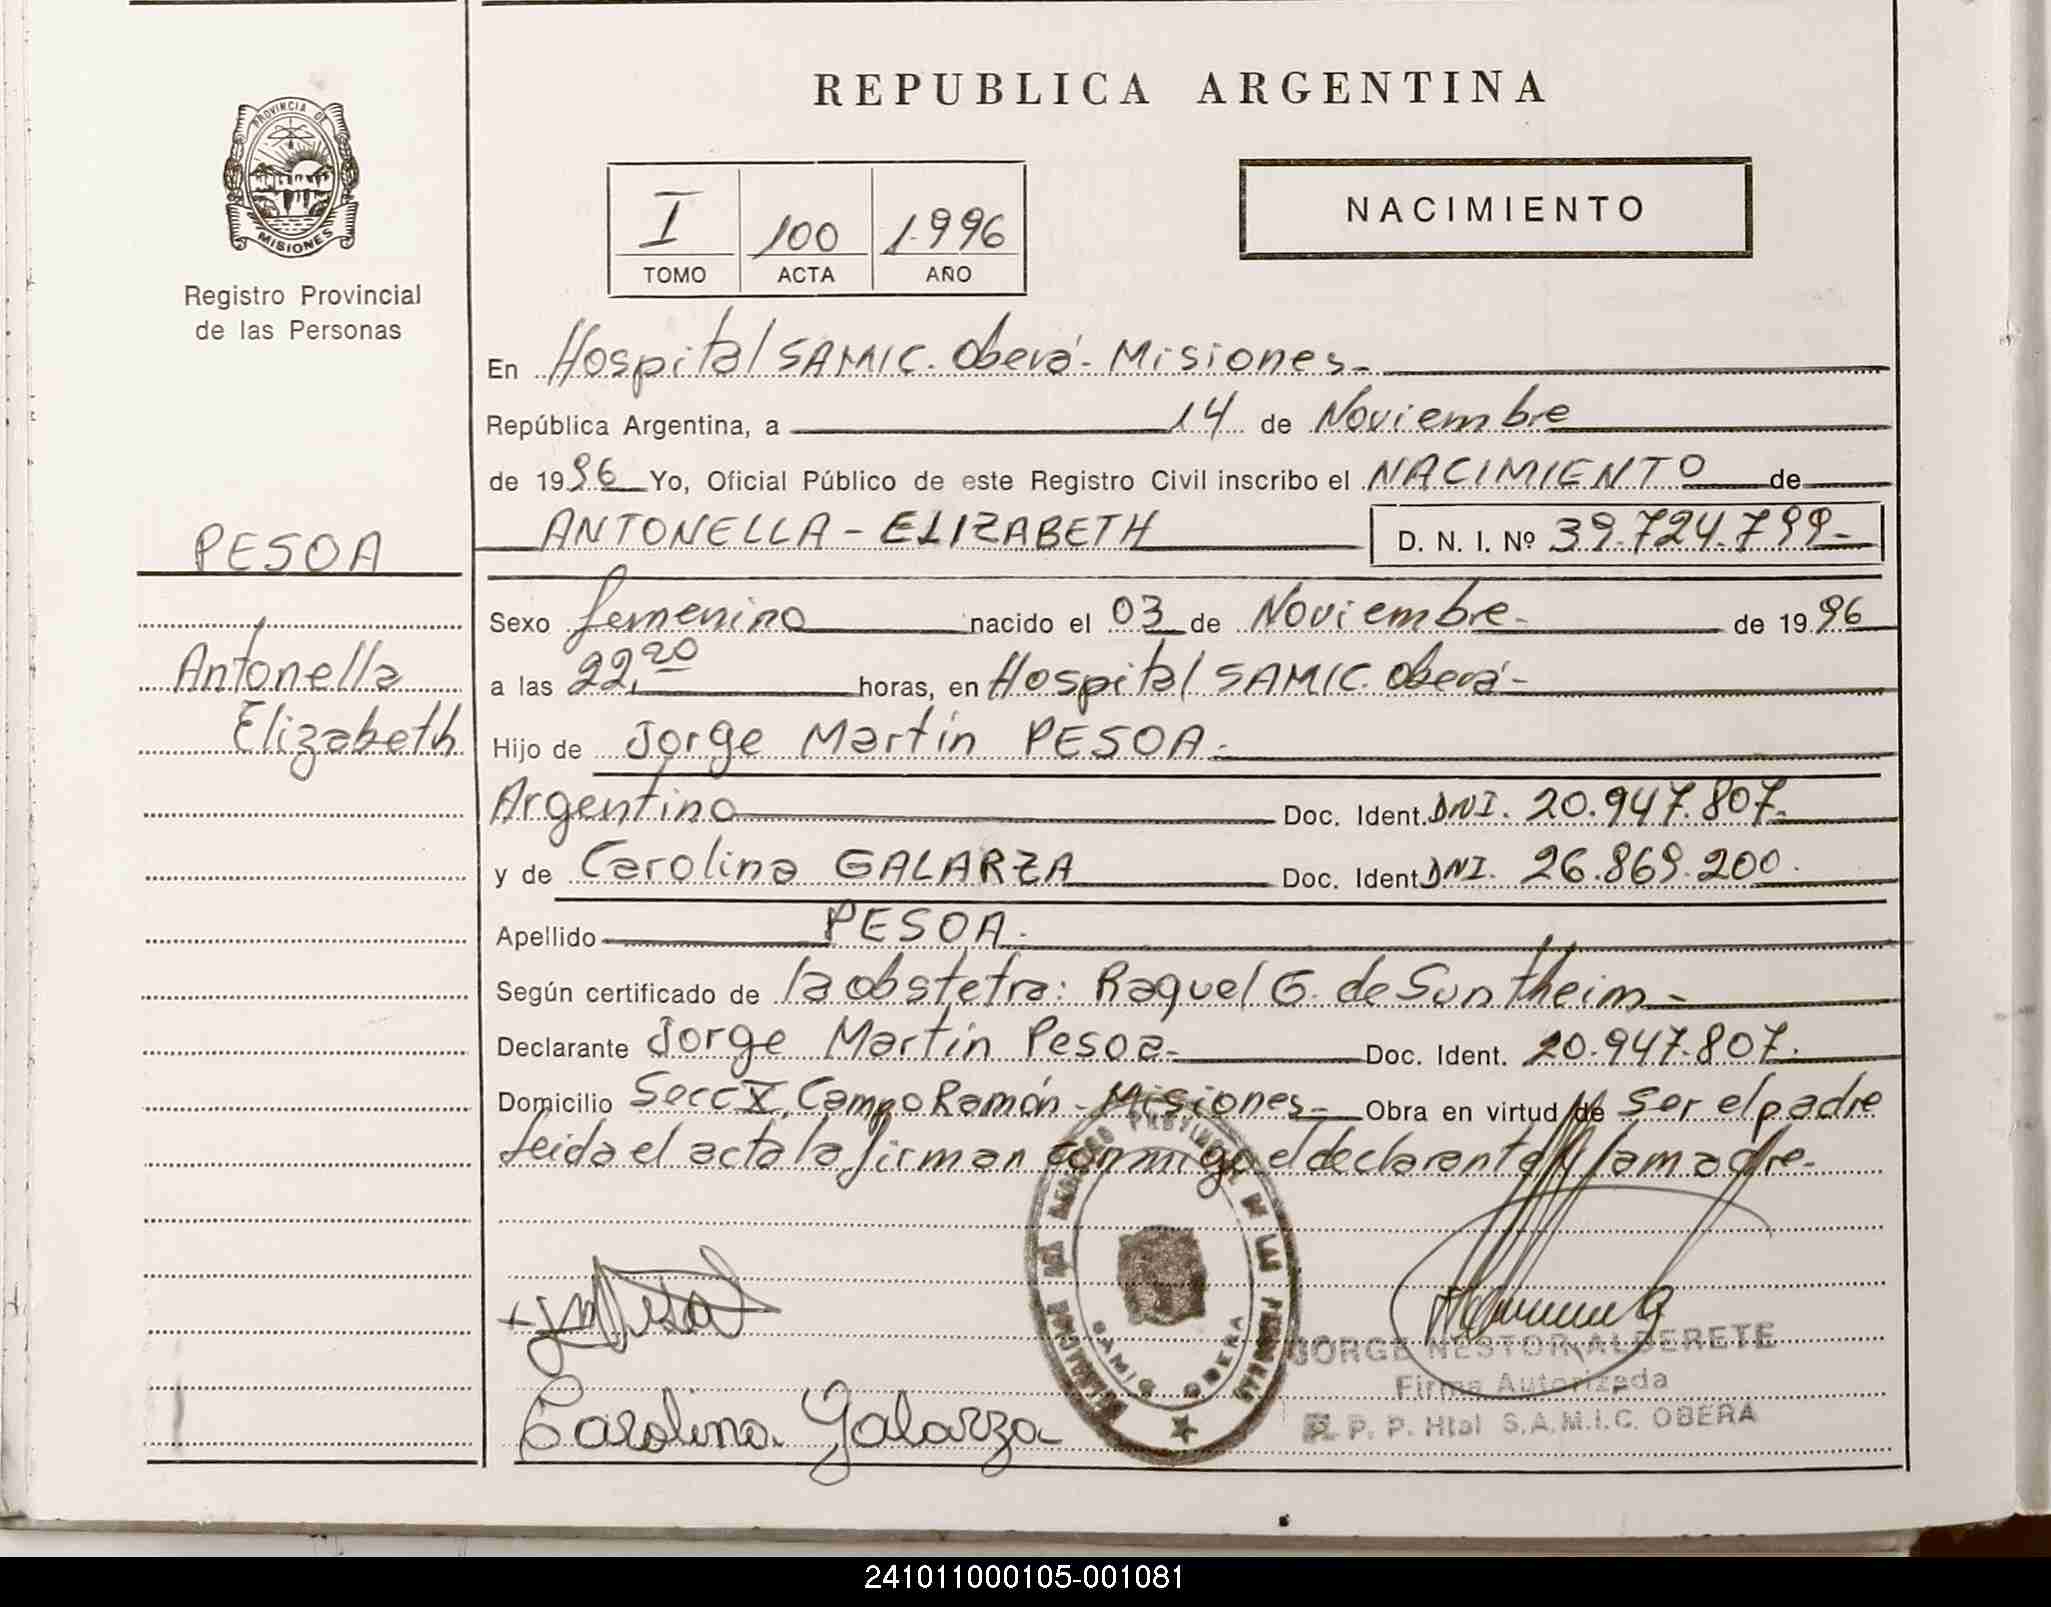 REPUBLICA ARGENTINA
PROVINCIA DE
MISIONES
Registro Provincial
de las Personas
I 100 1.996
TOMO ACTA AÑO
NACIMIENTO
En Hospital SAMIC. Oberá - Misiones -
República Argentina, a 14 de Noviembre
de 1996 Yo, Oficial Público de este Registro Civil inscribo el NACIMIENTO de
PESOA
ANTONELLA - ELIZABETH D. N. I. Nº 39.724.799-
Sexo femenino nacido el 03 de Noviembre - de 1996
Antonella
a las 22,20 horas, en Hospital SAMIC. Oberá -
Elizabeth
Hijo de Jorge Martín PESOA -
Argentino Doc. Ident. DNI. 20.947.807-
y de Carolina GALARZA Doc. Ident DNI. 26.869.200.
Apellido PESOA.
Según certificado de la obstetra: Raquel G. de Suntheim -
Declarante Jorge Martín Pesoa - Doc. Ident. 20.947.807.
Domicilio Secc X, Campo Ramón - Misiones - Obra en virtud de ser el padre
leida el acta la firman conmigo el declarante y la madre-
PROVINCIAL DE LAS PERSONAS
SAMIC OBERA
JORGE NESTOR ALDERETE
Firma Autorizada
R. P. P. Htal S.A.M.I.C. OBERA
Carolina Galarza
241011000105-001081